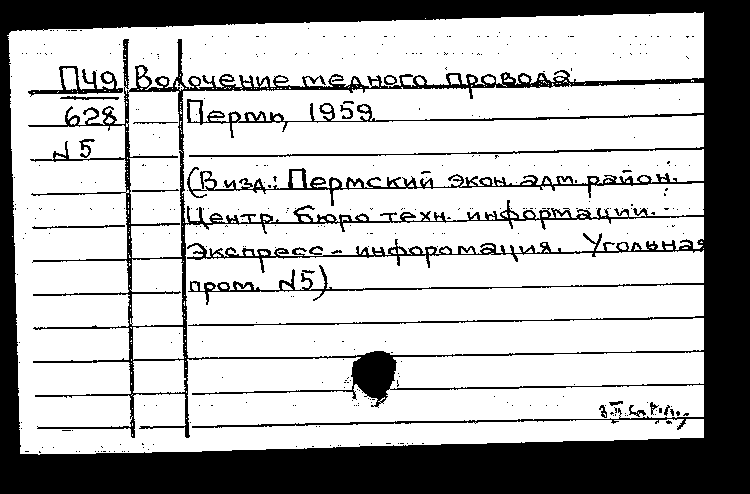 П49 Волочение медного провода.
628 Пермь, 1959
N5
(В изд.: Пермский экон. адм. район.
Центр. бюро техн. информации.
Экспресс - информация. Угольная
пром. N5)